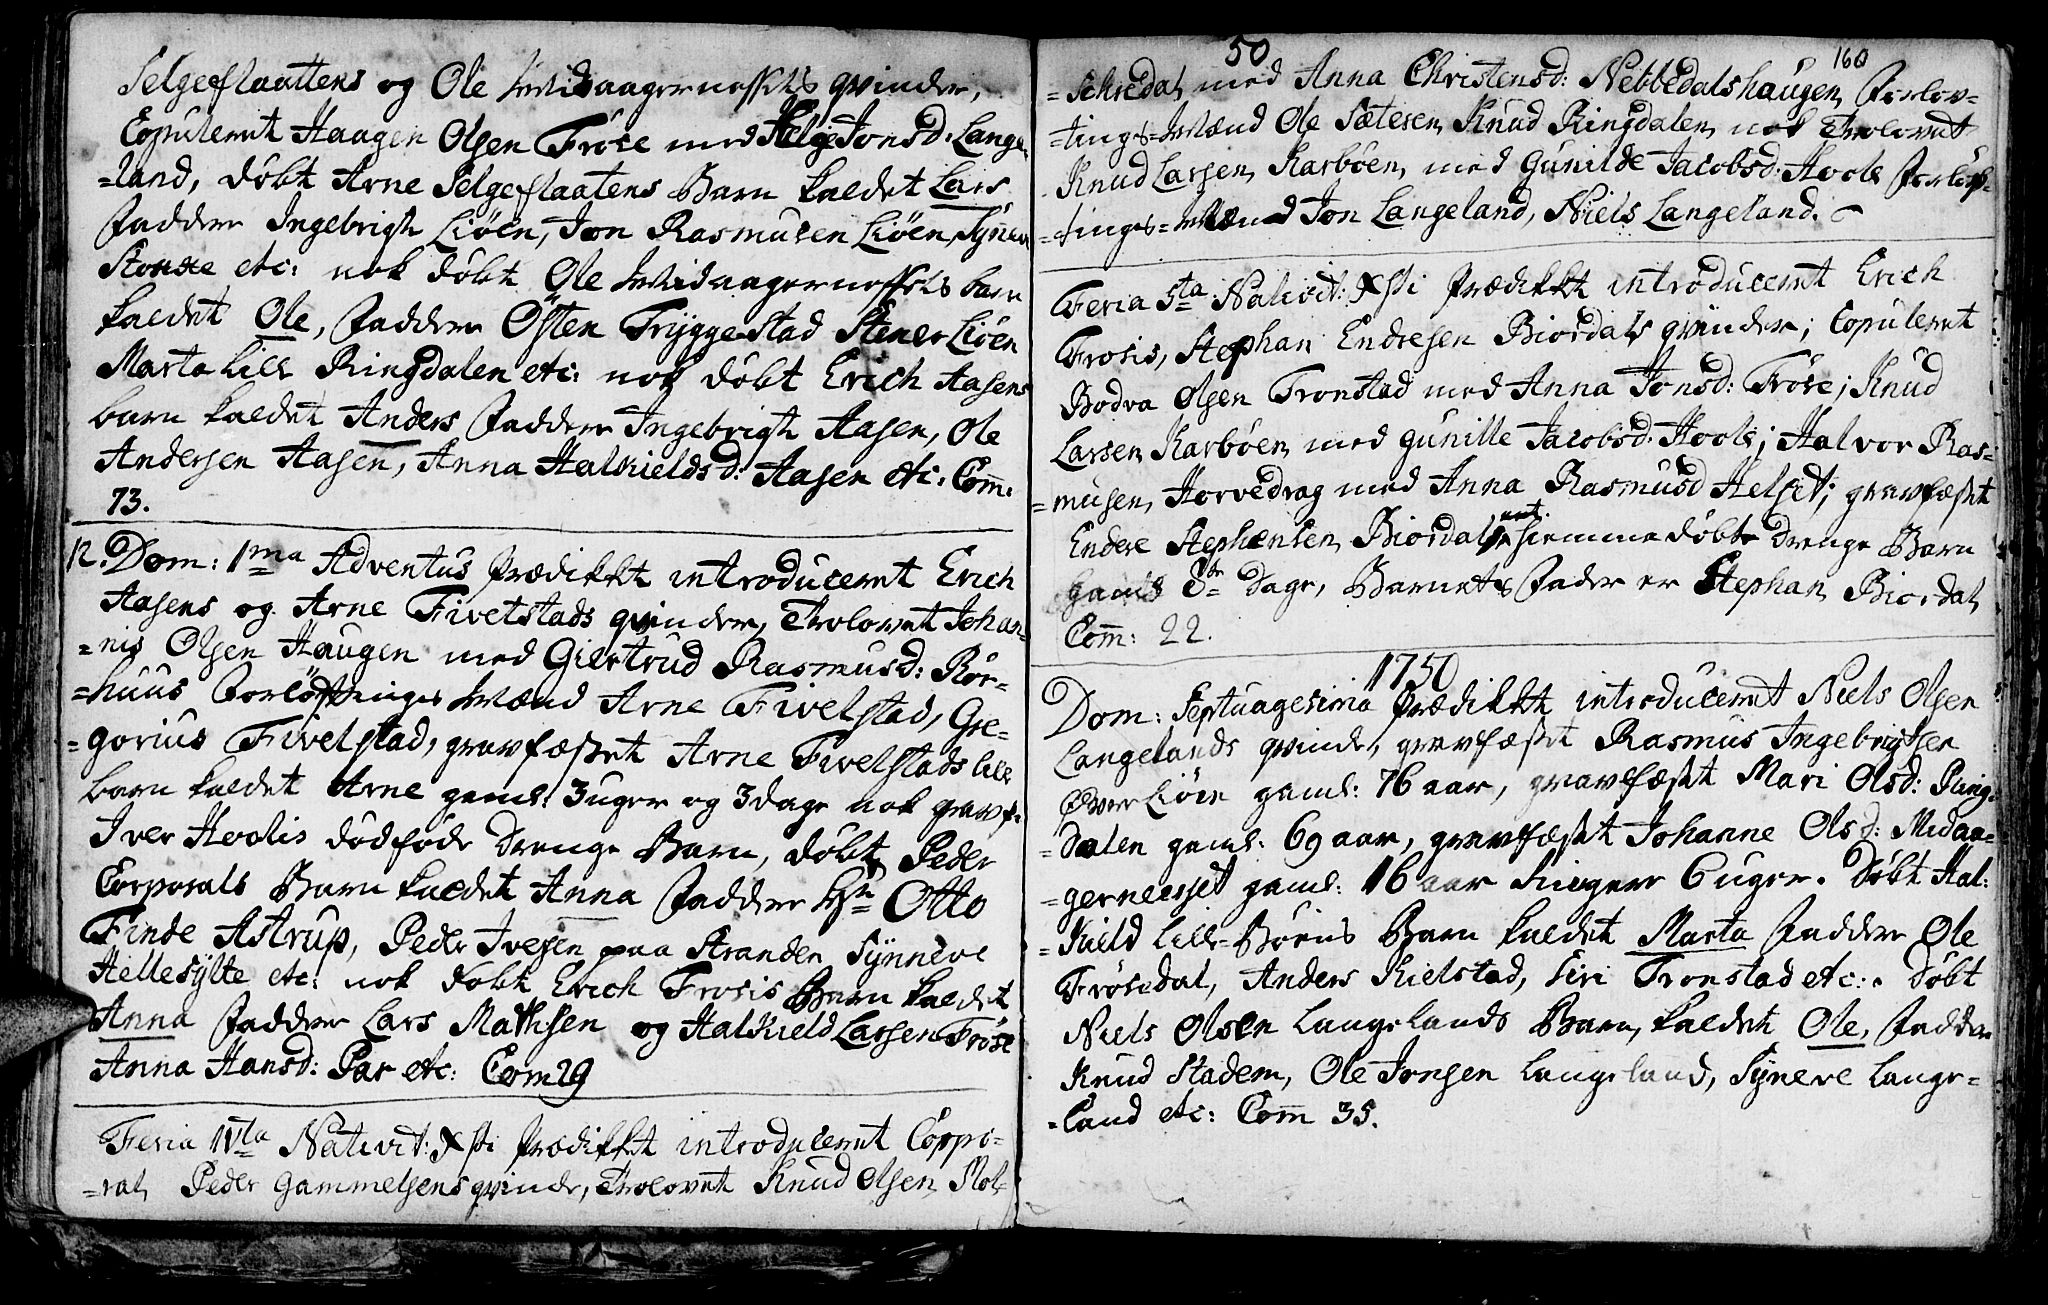 Selgeflaattens og Ole Midaagernessets qvinder,
Copuleret Haagen Olsen Frøse med Helge Jonsd: Lange-
-land, døbt Arne Selgeflaatens Barn kaldet Lars
Faddere Ingebrigt Liøen, Jon Rasmusen Liøen, Syneve
etc: nok døbt Ole Midaagernessets barn
kaldet Ole, Faddere Østen Tryggestad Stener Liøen
Marta Lill Ringdalen etc: nok døbt Erich Aasens
barn kaldet Anders Faddere Ingebrigt Aasen, Ole
Andersen Aasen, Anna Halkieldsd: Aasen etc: Com:
73.
12. Dom: 1ma Adventus Prædikket introduceret Erich
Aasens og Arne Fivelstads qvinder, Trolovet Johan-
=nis Olsen Haugen med Giertrud Rasmusd: Rør-
=huus Forløftnings Mænd Arne Fivelstad, Gre-
=gorius Fivelstad, gravfæstet Arne Fivelstads lill
barn kaldet Arne gaml: 3 uger og 3 dage nok gravf:
Iver Hoolis dødføde Drenge Barn, døbt Peder
Corporals Barn kaldet Anna Faddere Hr Otto
Finde Astrup, Peder Ivesen paa Stranden Synneve
Hellesylte etc: nok døbt Erich Frosis Barn kaldet
Anna Faddere Lars Mathsen og Halkield Larsen Frøse
Anna Hansd: Par etc: Com 29
Feria IVta Nativit: Xsti Prædikket introduceret Corpo-
=ral Peder Gammelsens qvinde, Trolovet Knud Olsen Mol-
50 160
=skredal med Anna Christensd: Nebbedalshaugen, Forløv-
=tings-Mænd Ole Sætesen, Knud Ringdalen, nok Trolovet
Knud Larsen, Karbøen, med Gunilde Jacobsd: Hoole Forløf-
=tings=Mænd Jon Langeland, Niels Langeland.
Feria 5ta Nativit: Xsti Prædikket introduceret Erich
Frosis, Stephan Endresen Biordals qvinder; Copuleret
Bodva Olsen Tronstad med Anna Jonsd: Frøse; Knud
Larsen Karbøen, med Gunille Jacobsd: Hoole; Halvor Ras-
=musen, Horvedrag med Anna Rasmusd Helset; gravfæstet
Endere Stephensen, Biordals hiemme døbte Drenge Barn
gaml 8te Dage, Barnets Fader er Stephan Biordal
Com: 22.
1750
Dom: Septuagesima Prædikket introduceret Niels Olsen
Langelands qvinde, gravfæstet Rasmus Ingebrigtsen
Øver Liøen gaml: 76 aar, gravfæstet Mari Olsd: Ring-
=dalen gaml: 69 aar, gravfæstet Johanne Olsd: Midaa-
=gerneesset gaml: 16 aar ringere 6 uger. Døbt Hal:
=kield Lille-Børis Barn kaldet Marta Faddere Ole
Frøsedal, Anders Kielstad, Siri Tronstad etc: . Døbt
Niels Olsen Langelands Barn, kaldet Ole, Faddere
Knud Stadem, Ole Jonsen Langeland, Syneve Lange-
=land etc: Com 35.